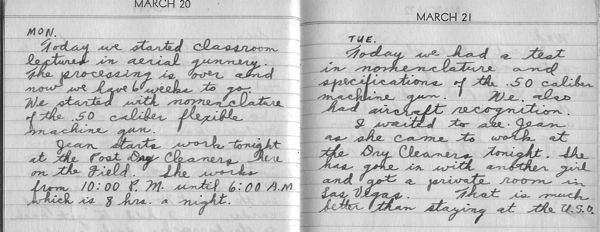 MARCH 20
MON.
Today we started classroom
lectures in aerial gunnery.
The processing is over and
now we have 6 weeks to go.
We started with nomenclature
of the .50 caliber flexible
machine gun.
Jean starts work tonight
at the Post Dry Cleaners here
on the Field. She works
from 10:00 P.M. until 6:00 A.M
which is 8 hrs. a night.
MARCH 21
TUE.
Today we had a test
in nomenclature and
specifications of the .50 caliber
machine gun. We also
had aircraft recognition.
I waited to see Jean
as she came to work at
the Dry Cleaners tonight. She
has gone in with another girl
and got a private room in
Las Vegas. That is much
better than staying at the U.S.O.